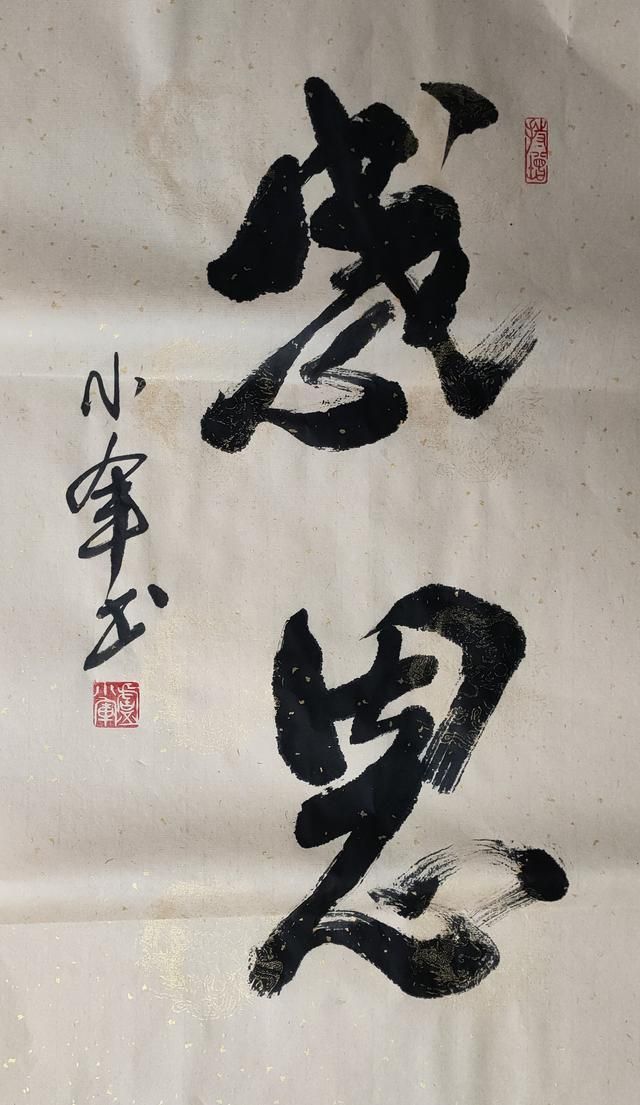 感恩
小军书